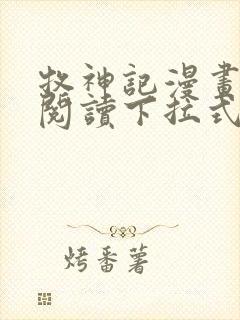 牧神記漫畫
閱讀下拉式
烤番薯